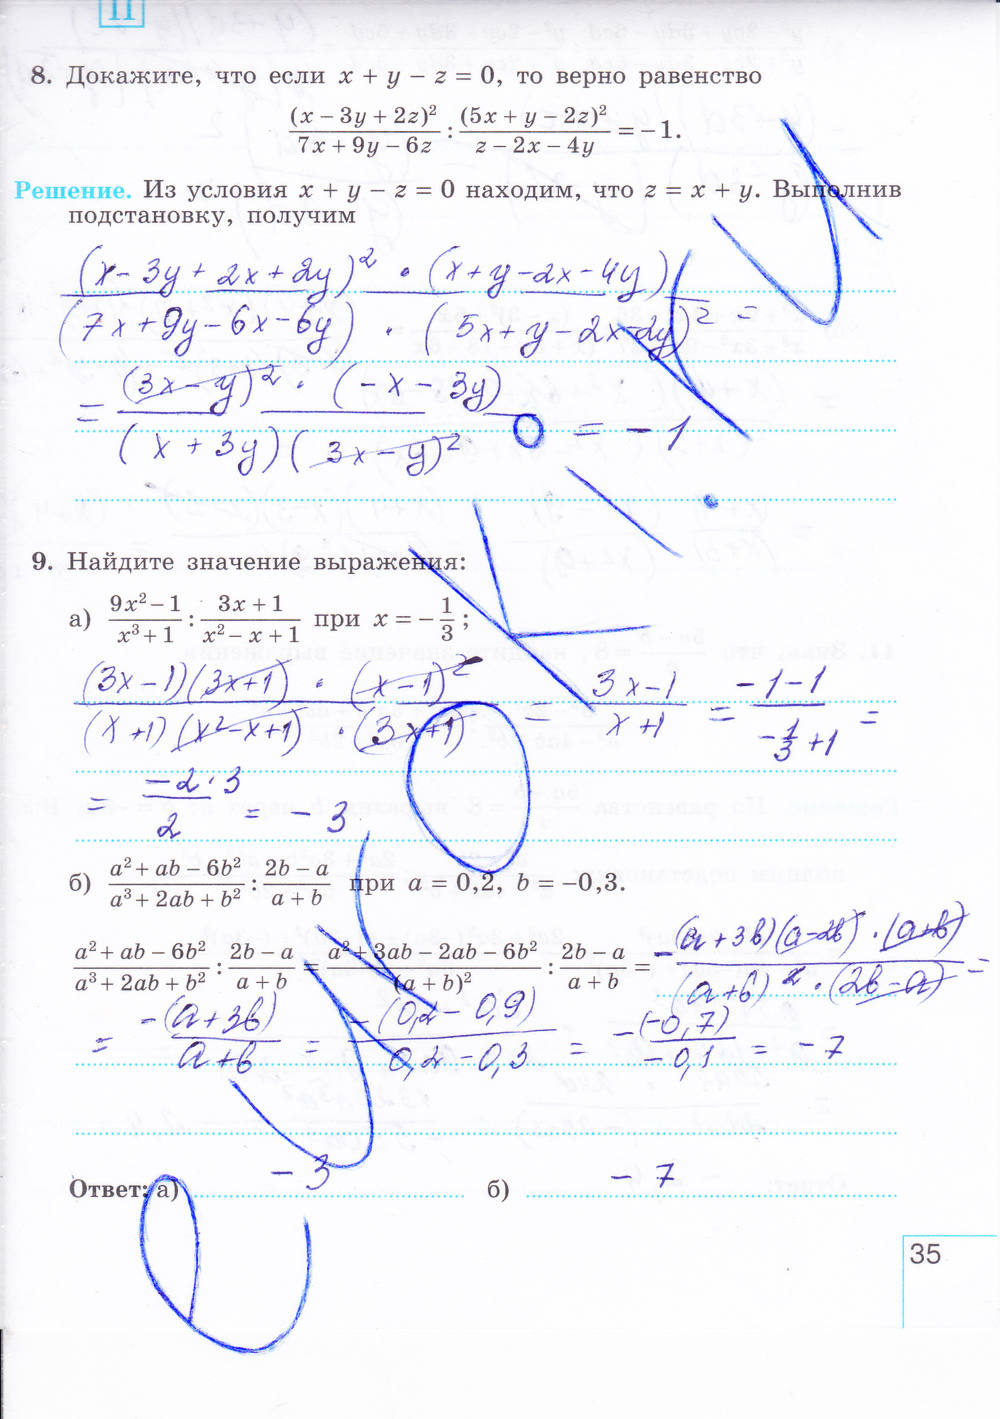 II
8. Докажите, что если x + y − z = 0, то верно равенство
(x − 3y + 2z)² / (7x + 9y − 6z) : (5x + y − 2z)² / (z − 2x − 4y) = −1.
Решение. Из условия x + y − z = 0 находим, что z = x + y. Выполнив
подстановку, получим
(x − 3y + 2x + 2y)² · (x + y − 2x − 4y) / (7x + 9y − 6x − 6y) · (5x + y − 2x − 2y)² =
= (3x − y)² · (−x − 3y) / (x + 3y)(3x − y)² = −1
9. Найдите значение выражения:
а) (9x² − 1) / (x³ + 1) : (3x + 1) / (x² − x + 1) при x = −1/3;
(3x − 1)(3x + 1) · (x − 1)² / (x + 1)(x² − x + 1) · (3x + 1) = (3x − 1) / (x + 1) = (−1 − 1) / (−1/3 + 1) =
= (−2 · 3) / 2 = −3
б) (a² + ab − 6b²) / (a³ + 2ab + b²) : (2b − a) / (a + b) при a = 0,2, b = −0,3.
(a² + ab − 6b²) / (a³ + 2ab + b²) : (2b − a) / (a + b) = (a² + 3ab − 2ab − 6b²) / (a + b)² : (2b − a) / (a + b) = −(a + 3b)(a − 2b) · (a + b) / (a + b)² · (2b − a) =
= −(a + 3b) / (a + b) = −(0,2 − 0,9) / (0,2 − 0,3) = −(−0,7) / −0,1 = −7
Ответ: а) −3 б) −7
35
euroki.ru